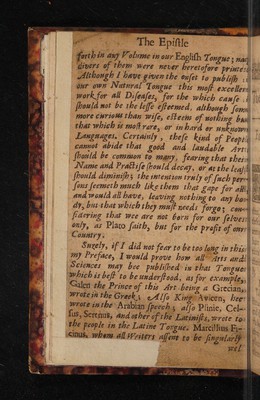 The Epistle
forth in any Volume in our English Tongue; nay
divers of them were never heretofore printed
Although I have given the onset to publish
our own Natural Tongue this most excellent
work for all Diseases, for the which cause
should not be the lesse esteemed, although some
more curious than wise, esteem of nothing but
that which is most rare, or in hard or unknown
Languages. Certainly, these kind of People
cannot abide that good and laudable Arts
should be common to many, fearing that their
Name and Practise should decay, or at the least
should diminish; the intention truly of such per-
sons seemeth much like them that gape for all,
and would all have, leaving nothing to any bo-
dy, but that which they must needs forgo; con-
sidering that wee are not born for our selves
only, as Plato saith, but for the profit of our
Country.
Surely, if I did not fear to be too long in this
my Preface, I would prove how all Arts and
Sciences may bee published in that Tongue
which is best to be understood, as for example,
Galen the Prince of this Art being a Grecian,
wrote in the Greek; Also King Avicen, hee
wrote in the Arabian speech; also Plinie, Cel-
sus, Serenus, and other of the Latinists, wrote to
the people in the Latine Tongue. Marcillius Fi-
cinus, whom all Writers assent to be singularly
wel